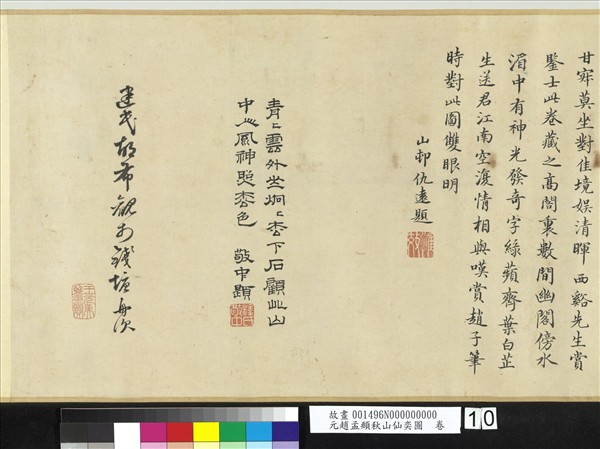 甘寂莫坐對佳境娛清暉西谿先生賞
鑒士此卷藏之高閣裏數間幽閣傍水
湄中有神光發奇字綠蘋齊葉白芷
生送君江南空復情相與嘆賞趙子筆
時對此圖雙眼明
山邨仇遠題
青〻雲外坐垌〻枩下石顧此山
中心風神照枩色
敬中題
建武 布觀于錢塘舟次
故畫 001496N000000000
元趙孟頫秋山仙奕圖 卷
10